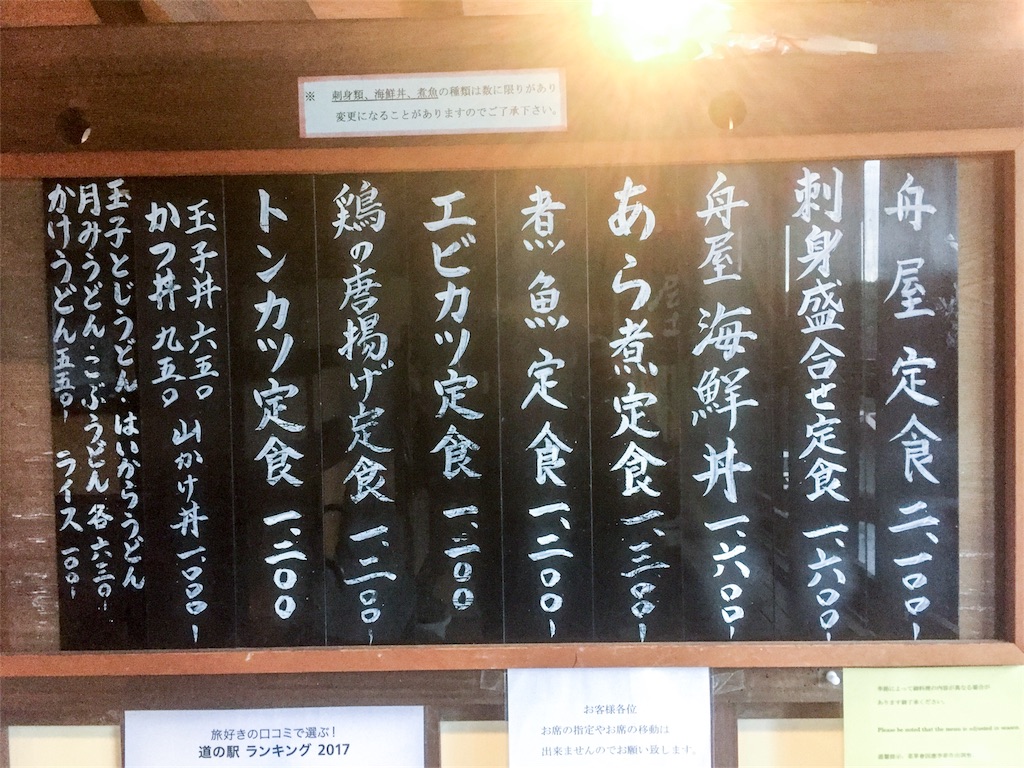 ※ 刺身類、海鮮丼、煮魚の種類は数に限りがあり
変更になることがありますのでご了承下さい。
舟屋定食 二、一〇〇ー
刺身盛合せ定食 一、六〇〇ー
舟屋海鮮丼 一、六〇〇ー
あら煮定食 一、三〇〇ー
煮魚定食 一、二〇〇ー
エビカツ定食 一、二〇〇
鶏の唐揚げ定食 一、二〇〇ー
トンカツ定食 一、二〇〇
玉子丼 六五〇 山かけ丼 一、〇〇〇ー
かつ丼 九五〇
玉子とじうどん・はいからうどん
月みうどん・こぶうどん 各 六三〇ー
かけうどん 五五〇ー ライス 一〇〇ー
旅好きの口コミで選ぶ!
道の駅 ランキング 2017
お客様各位
お席の指定やお席の移動は
出来ませんのでお願い致します。
季節によって御料理の内容が異なる場合が
あります御了承ください。
Please be noted that the menu is adjusted to season.